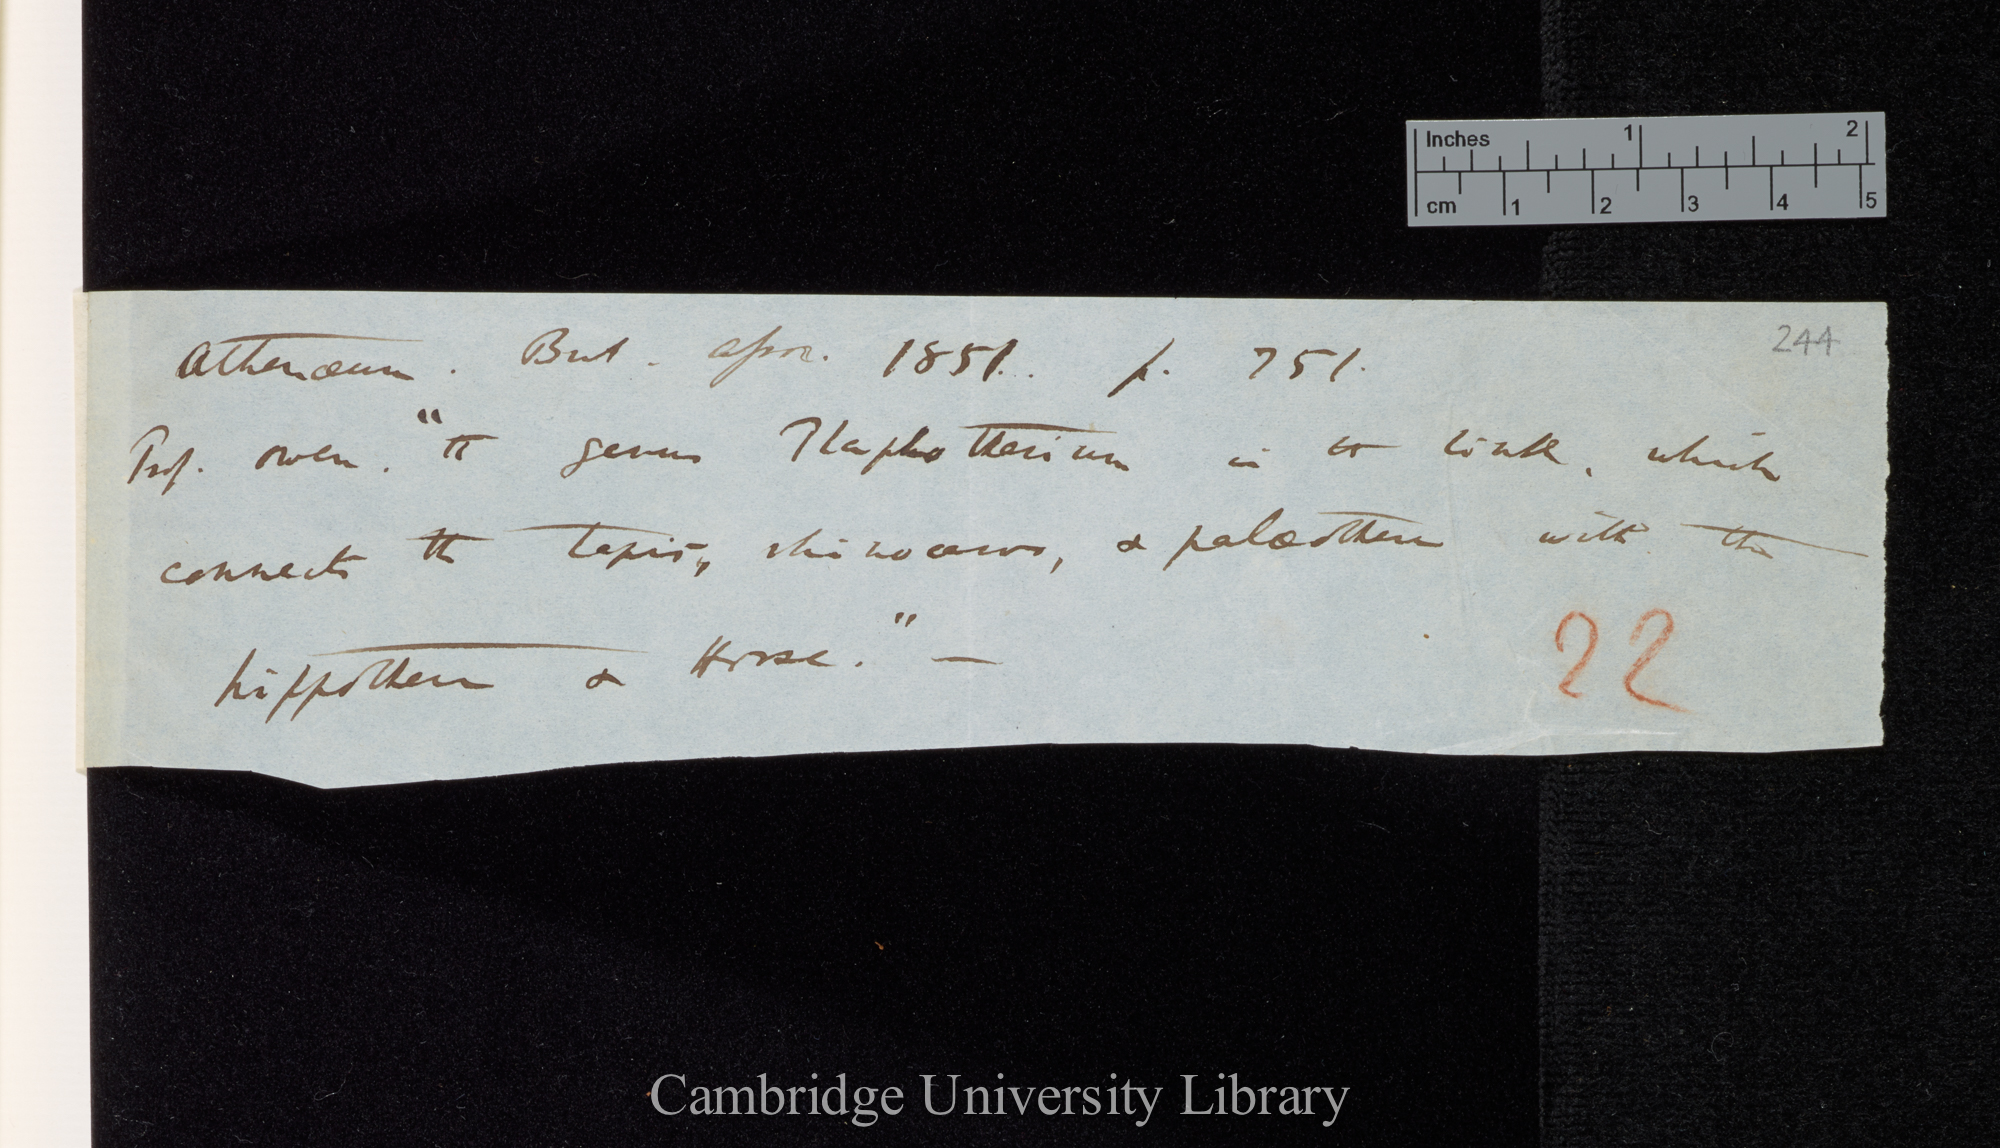 244
Athenæum. Brit. Assoc. 1851. p. 751.
Prof. Owen. "the genus Plaphotherium is the link, which
connects the tapir, rhinoceros, & palæothere with the
hippothere & Horse." —
22
Inches 1 2
cm 1 2 3 4 5
Cambridge University Library